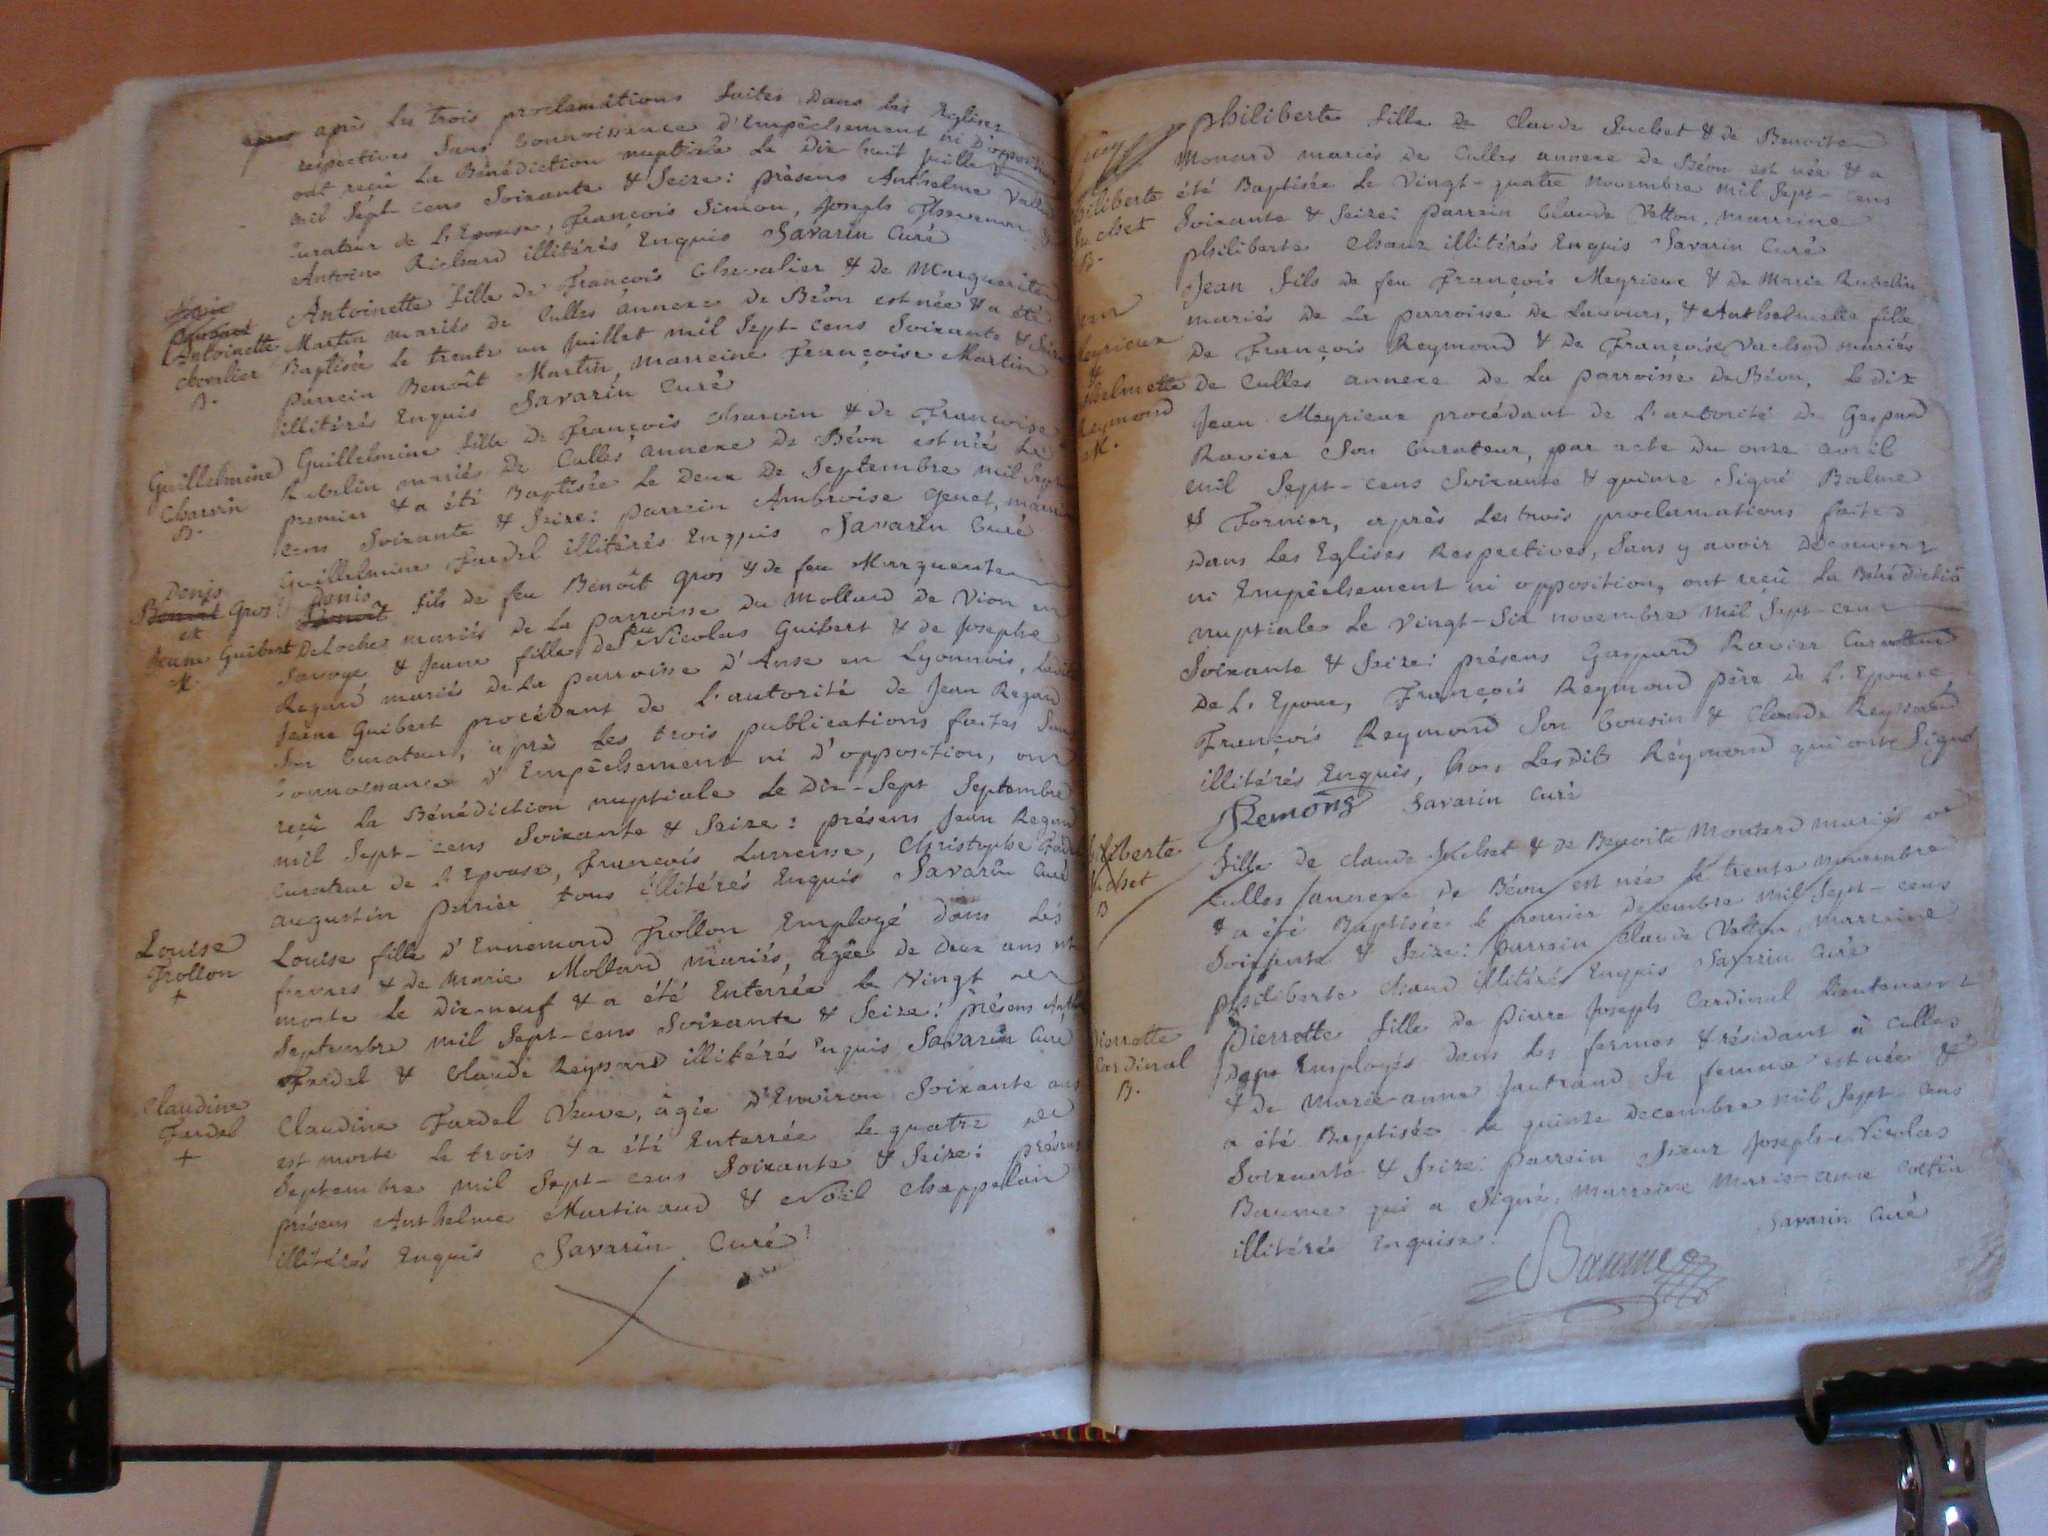 après les trois proclamations faites dans les Eglises
respectives sans connoissance d'Empêchement ni d'opposition
ont reçu la Bénédiction nuptiale le dix huit juillet
mil sept-cens soixante & seize: présens Anthelme
curateur de l'Epouse, François Simon, Joseph
Antoine Richard illitérés Enquis Savarin Curé
Antoinette
chevalier
B.
Antoinette fille de François Chevalier & de Marguerite
Martin mariés de Culles annexe de Béon est née & a été
Baptisée le trente un juillet mil sept-cens soixante & seize
parrein Benoît Martin, marreine Françoise Martin
illitérés Enquis Savarin Curé
Guillelmine
Charvin
B.
Guillelmine fille de François Charvin & de Françoise
Rubelin mariés de Culles annexe de Béon est née le
premier & a été Baptisée le deux de Septembre mil sept
cens soixante & seize: parrein Ambroise Genet, marreine
Guillelmine Fardel illitérés Enquis Savarin Curé
Denis
Benoît Gros
et
Jeane Guibert
M.
Denis
Benoît fils de feu Benoît Gros & de feu Marguerite
Deloche mariés de la parroisse du Mollard de Vion en
Savoye & Jeane fille de feu Nicolas Guibert & de Josephe
Regard mariés de la parroisse d'Anse en Lyonnois, ladite
Jeane Guibert procédant de l'autorité de Jean Regard
son Curateur, après les trois publications faites sans
connoissance d'Empêchement ni d'opposition, ont
reçu la Bénédiction nuptiale le dix-sept Septembre
mil sept-cens soixante & seize: présens Jean Regard
curateur de l'Epouse, François Lurreine, Christophe
augustin perrier tous illitérés Enquis Savarin Curé
Louise
Trollon
+
Louise fille d'Ennemond Trollon Employé dans les
fermes & de Marie Mollard mariés, âgée de deux ans est
morte le dix-neuf & a été Enterrée le vingt de
Septembre mil sept-cens soixante & seize: présens Anthelme
Fardel & Claude Reymond illitérés Enquis Savarin Curé
Claudine
Fardel
+
Claudine Fardel Veuve, âgée d'Environ soixante ans
est morte le trois & a été Enterrée le quatre de
Septembre mil sept-cens soixante & seize: présens
présens Anthelme Martinand & Noël Chappelain
illitérés Enquis Savarin Curé
philiberte
Suchet
B.
philiberte fille de Claude Suchet & de Benoite
Monard mariés de Culles annexe de Béon est née & a
été Baptisée le vingt-quatre novembre mil sept-cens
soixante & seize: parrein Claude Vetton, marreine
philiberte Chanx illitérés Enquis Savarin Curé
Jean
Meyrieux
&
Anthelmette
Reymond
M.
Jean fils de feu François Meyrieux & de Marie Rubelin
mariés de la parroisse de Lavours, & Anthelmette fille
de François Reymond & de Françoise Vachod mariés
de Culles annexe de la parroisse de Béon, ledit
Jean Meyrieux procédant de l'autorité de Gaspard
Ravier son Curateur, par acte du onze avril
mil sept-cens soixante & quinze signé Balme
& Fornier, après les trois proclamations faites
dans les Eglises Respectives, sans y avoir découvert
ni Empêchement ni opposition, ont reçu la Bénédiction
nuptiale le vingt-six novembre mil sept-cens
soixante & seize: présens Gaspard Ravier Curateur
de l'Epoux, François Reymond père de l'Epouse,
François Reymond son Cousin & Claude Reymond
illitérés Enquis, hors lesdits Reymond qui ont signé
Remond Savarin Curé
philiberte
Suchet
B
fille de Claude Suchet & de Benoite Monard mariés de
Culles annexe de Béon est née le trente novembre
& a été Baptisée le premier decembre mil sept-cens
soixante & seize: parrein Claude Vetton, marreine
philiberte Chaud illitérés Enquis Savarin Curé
Pierrette
Cardinal
B.
Pierrette fille de Pierre Joseph Cardinal Lieutenant
des Employés dans les fermes & résidant à Culles
& de Marie-anne Jautrand sa femme est née &
a été Baptisée le quinze decembre mil sept-cens
soixante & seize: parrein Sieur Joseph-Nicolas
Baume qui a signé, marreine Marie-anne Cottin
illitérée Enquise.
Savarin Curé
Baume